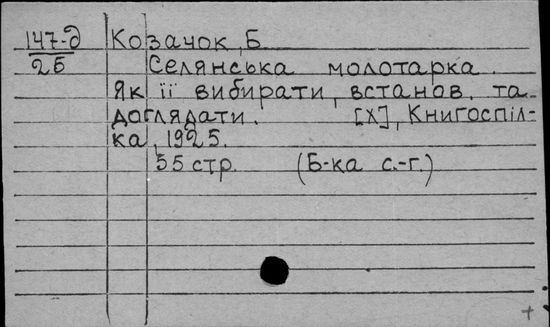 147-д
25
Козачок, Б
Селянська молотарка.
Як її вибирати, встанов. та
доглядати. [Х], Книгоспіл-
ка, 1925.
55 стр. (Б-ка с.-г.)
+